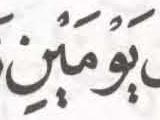 يَوْمَيْنِ